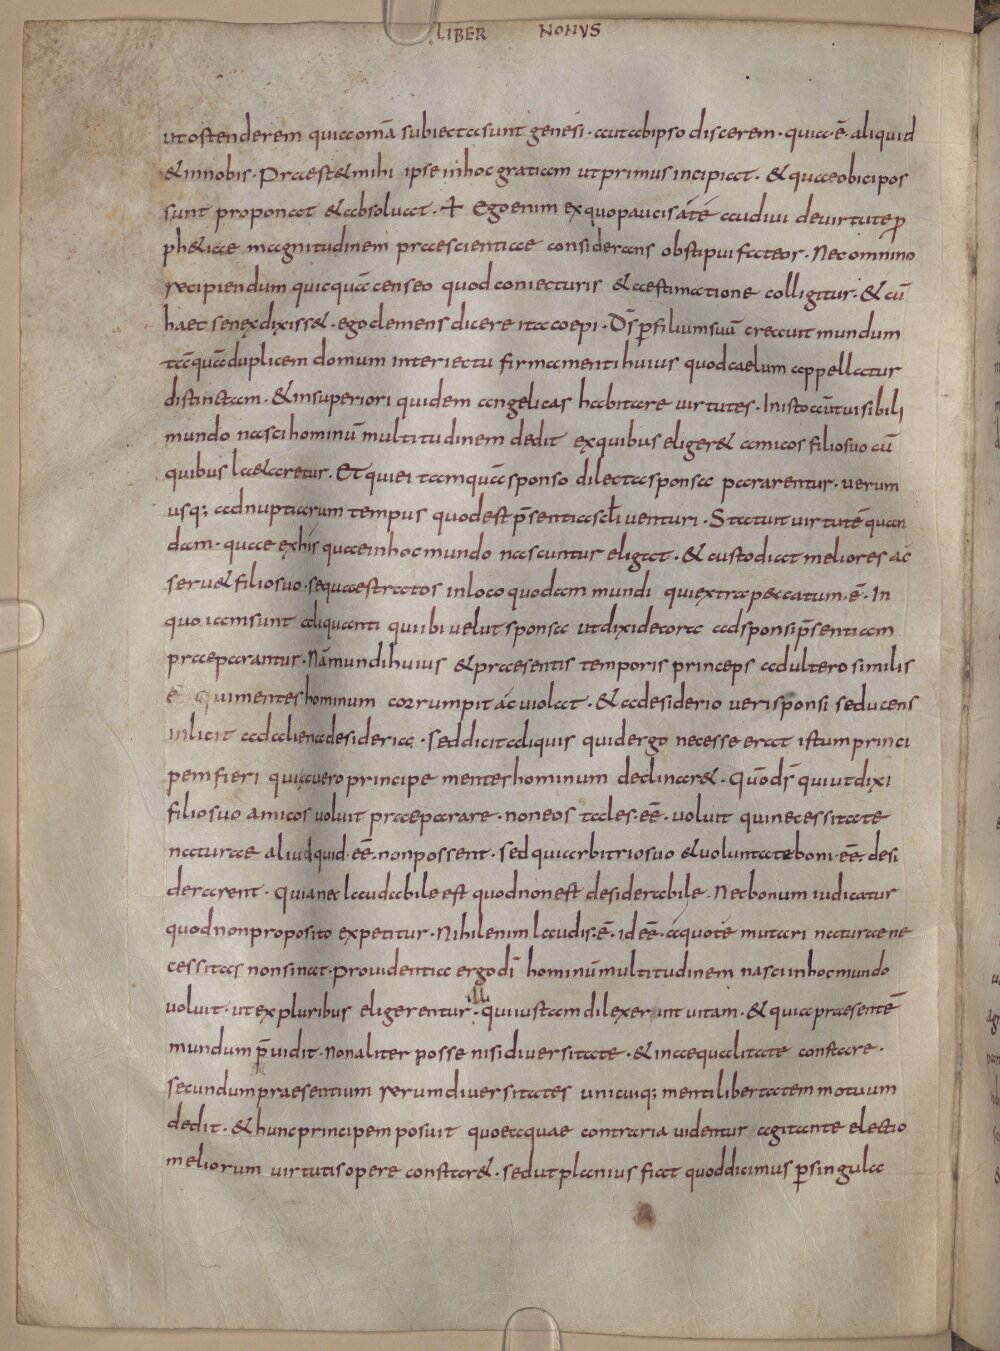 LIBER NONVS
ut ostenderem quia om̄a subiecta sunt genesi · aut ab ipso discerem · quia · ē · aliquid
& in nobis · Praest& mihi ipse in hoc gratiam ut primus incipiat · & quae obici pos
sunt proponat & absoluat · ✝ Ego enim ex quo paucis a te audiui de uirtute p̱
ph&iae magnitudinem praescientiae considerans obstipui fateor · Nec omnino
recipiendum quicquā censeo quod coniecturis & aestimatione colligitur · & cū
haec senex dixiss& · ego clemens dicere ita coepi · D̄s p̱ filium suū creauit mundum
tāquā duplicem domum interiectu firmamenti huius quod caelum appellatur
distinctam · & in superiori quidem angelicas habitare uirtutes · In isto aūt uisibili
mundo nasci hominū multitudinem dedit ex quibus eliger& amicos filio suo cū
quibus la&aretur · Et qui ei tamquā sponso dilecta sponsa pararentur · uerum
usq; ad nuptiarum tempus quod est p̄sentia sc̄li uenturi · Statuit uirtutē quan
dam · quae ex his quae in hoc mundo nascuntur eligat · & custodiat meliores ac
seru& filio suo · sequaestratos in loco quodam mundi qui extra peccatum · ē · In
quo iam sunt aliquanti qui ibi uelut sponsa ut dixi decora ad sponsi p̄sentiam
praeparantur · Nā mundi huius & praesentis temporis princeps adultero similis
ē qui mentes hominum corrumpit ac uiolat · & a desiderio ueri sponsi seducens
inlicit ad aliena desideria · sed dicit aliquis quid ergo necesse erat istum princi
pem fieri qui a uero principe mentes hominum declinar& · Quō d̄s qui ut dixi
filio suo amicos uoluit praeparare · non eos tales · eē · uoluit qui necessitate
naturae aliud quid · eē · non possent · sed qui arbitrio suo & uoluntate boni · eē · desi
derarent · Quia nec laudabile est quod non est desiderabile · Nec bonum iudicatur
quod non proposito expetitur · Nihil enim laudis · ē · id eē · a quo te mutari naturae ne
cessitas non sinat · Prouidentia ergo dī hominū multitudinem nasci in hoc mundo
uoluit · ut ex pluribus eligerentur · qui iustam dilexerint uitam · & quia praesentē
mundum p̄uidit · non aliter posse nisi diuersitate · & inaequalitate constare ·
secundum praesentium rerum diuersitates unicuiq; menti libertatem motuum
dedit · & hunc principem posuit quo et a quae contraria uidentur agitante electio
meliorum uirtutis opere constar& · sed ut planius fiat quod dicimus p̱ singula